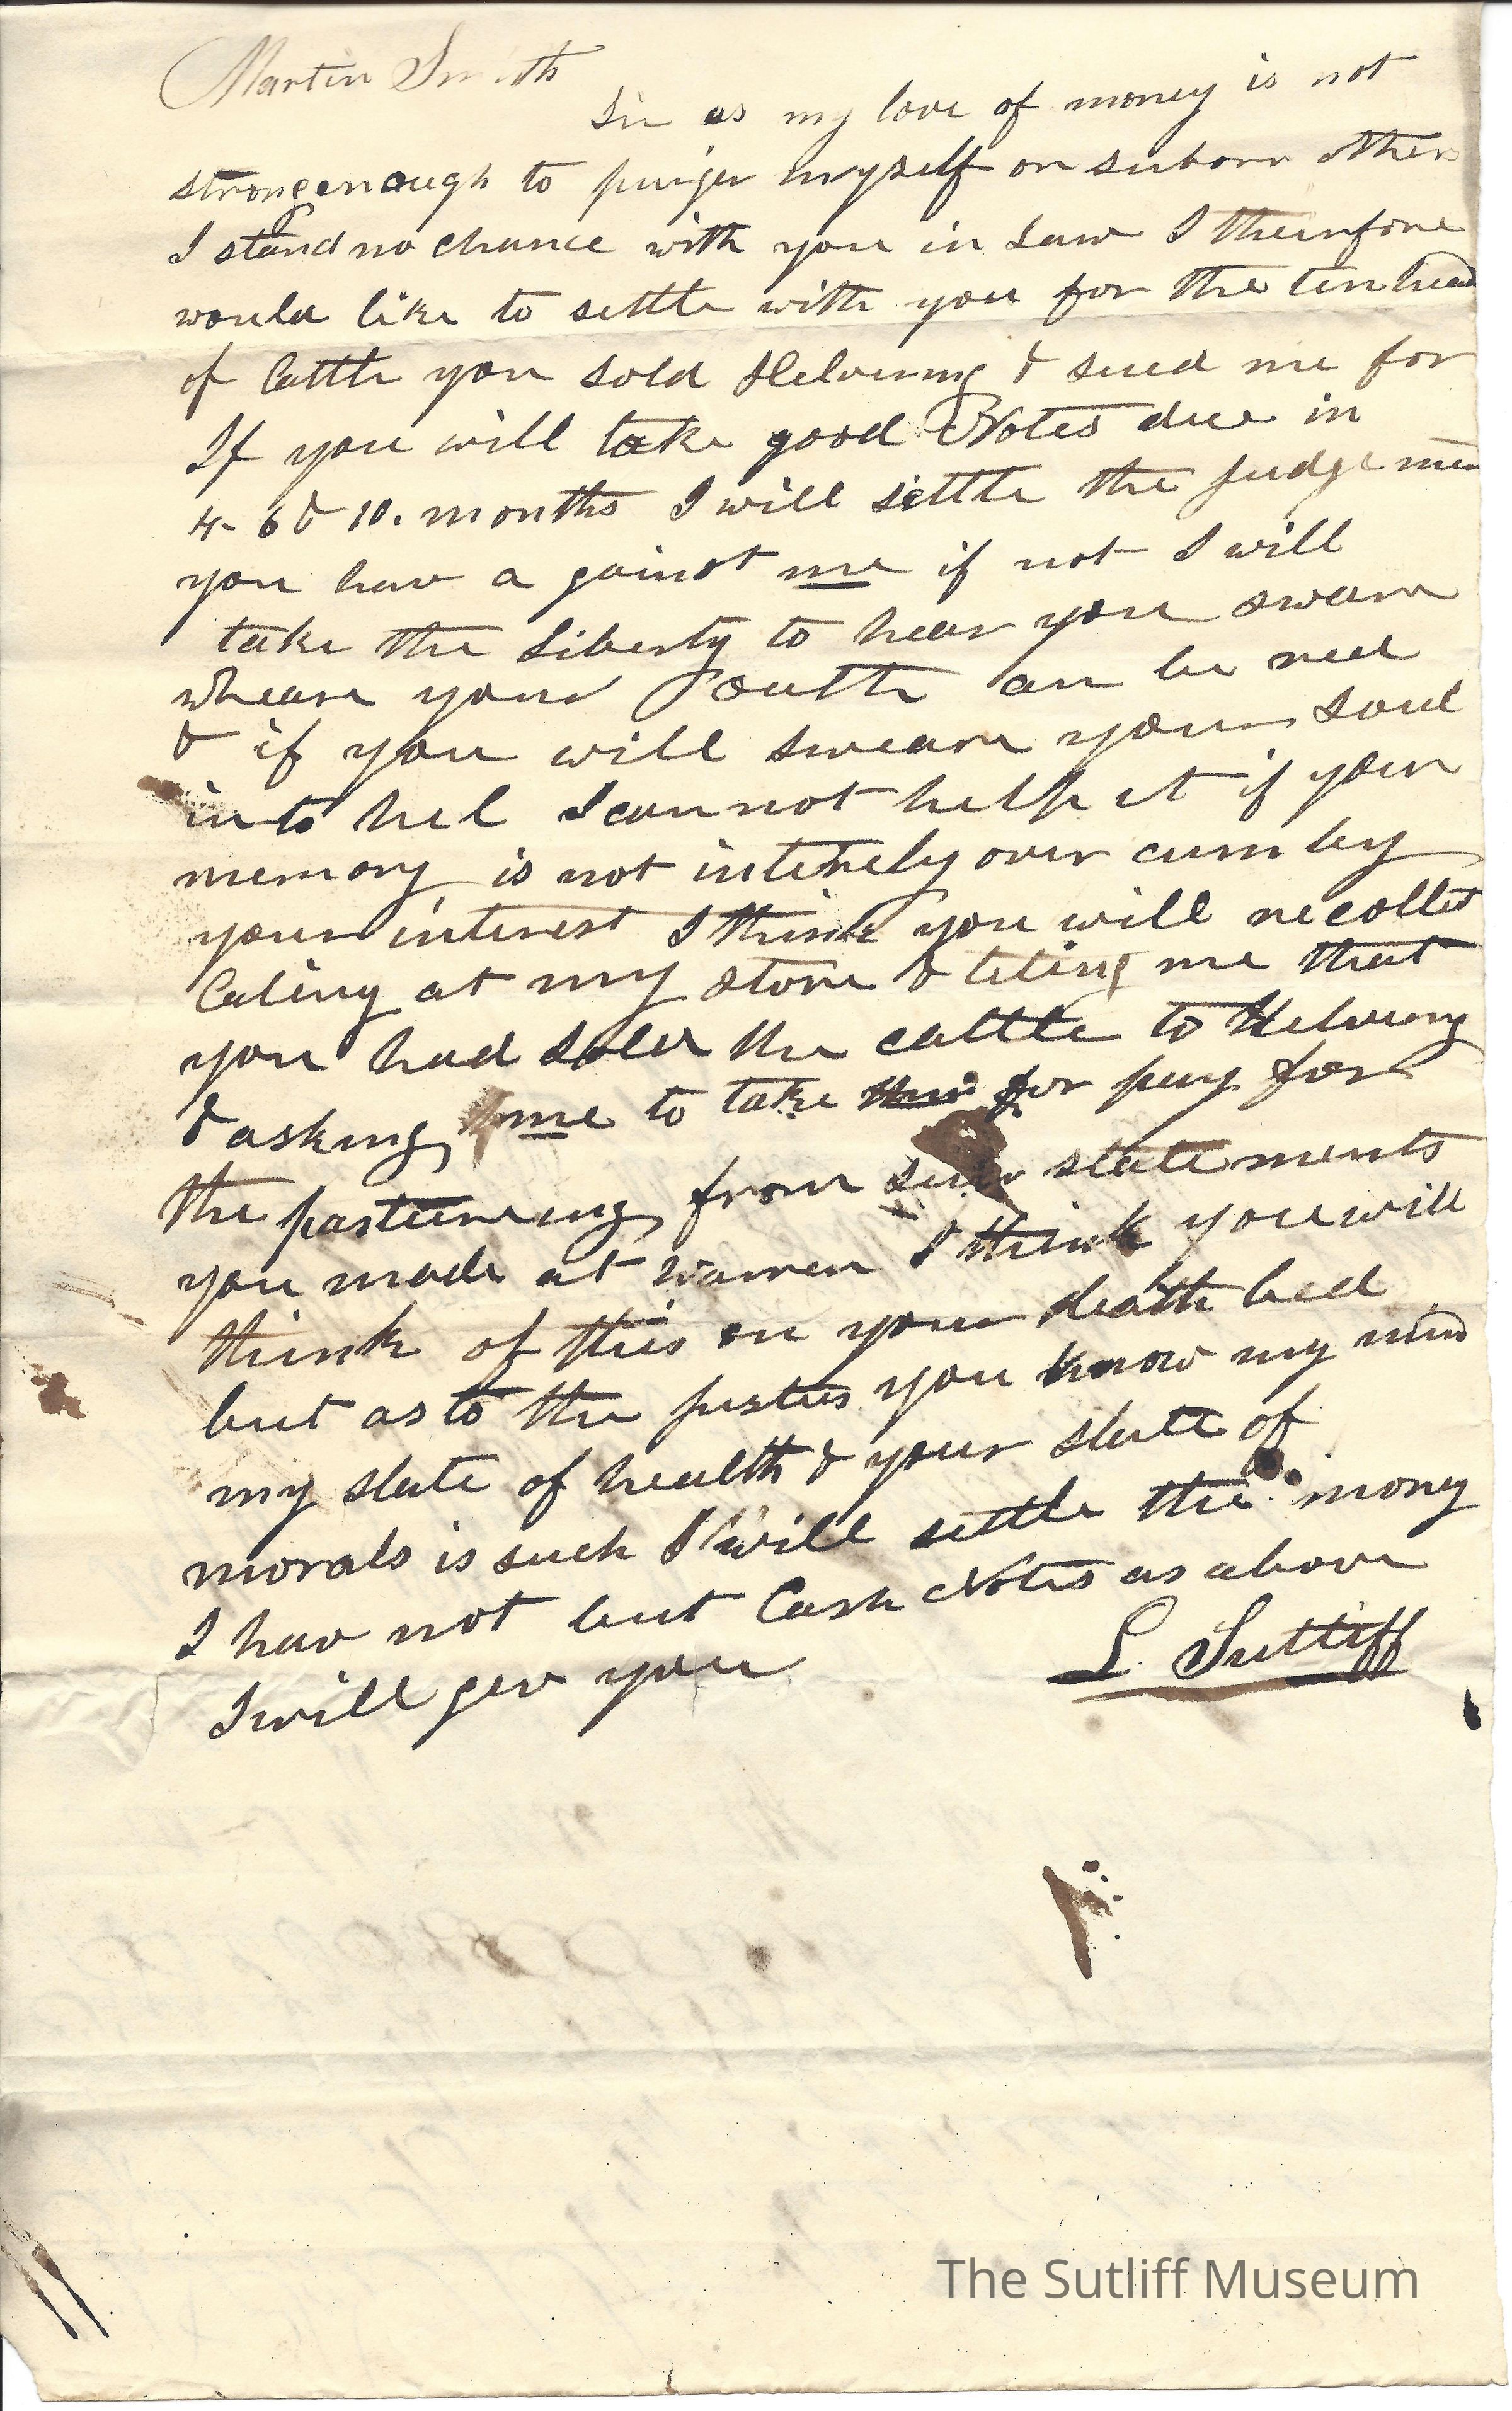 Martin Smith
Sir as my love of money is not
strong enough to purjer myself or suborn others
I stand no chance with you in Law I thearfore
would like to settle with you for the ten head
of Cattle you sold Helvering & sued me for
If you will take good Notes due in
4- 6 & 10. months I will settle the judgement
you hav a gainst me if not I will
take the Liberty to hear you swear
wheare your oatth can be
& if you will sweare your soul
into hel I can not help it if your
memory is not intirely over cum by
your interest I think you will recollet
Caling at my store & teling me that
you had sold the cattle to Helvering
& asking me to take for pay for
the pastureing from statements
you made at warren I think you will
think of this on your death bed
but as to the justus you know my mind
my state of health & your state of
morals is such I will settle the mony
I hav not but Cash Notes as above
I will gev you
L. Sutliff
The Sutliff Museum